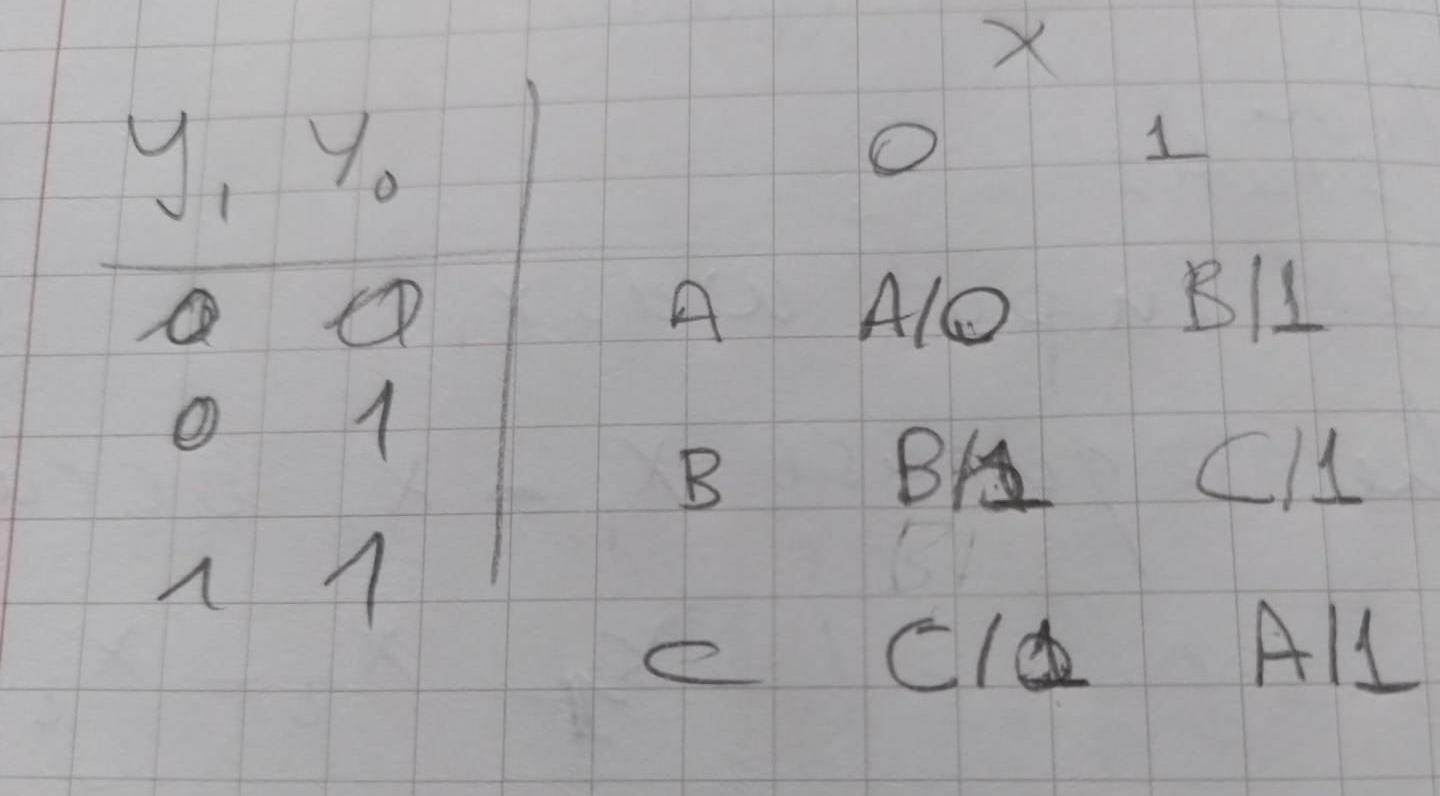 X
y₁ y₀ 0 1
0 0 A A/0 B/1
0 1 B B/1 C/1
1 1 C C/1 A/1